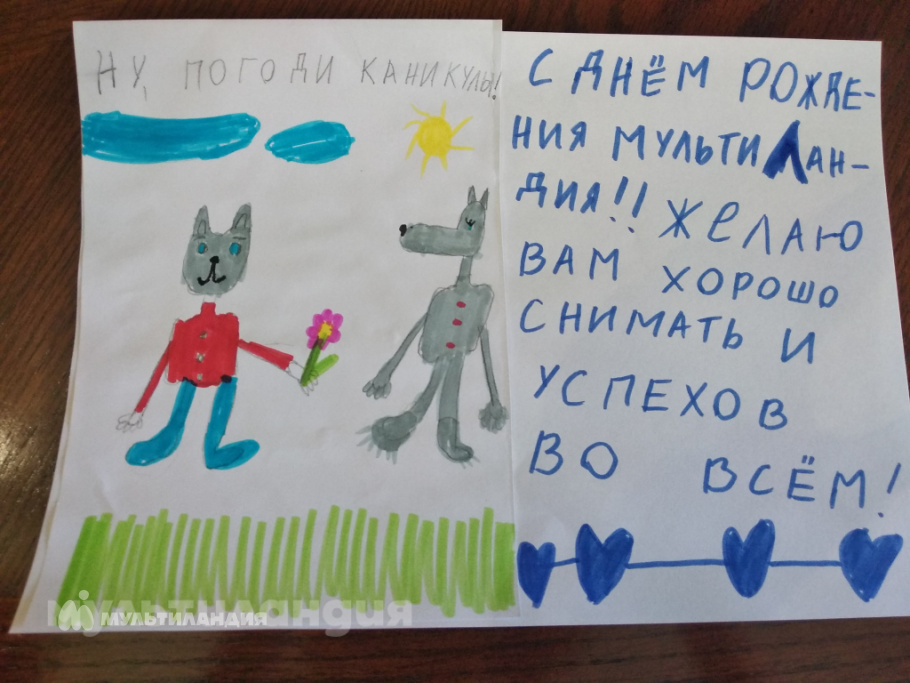 НУ, ПОГОДИ КАНИКУЛЫ!
С ДНЁМ РОЖДЕ-
НИЯ МУЛЬТИЛАН-
ДИЯ!! ЖЕЛАЮ
ВАМ ХОРОШО
СНИМАТЬ И
УСПЕХОВ
ВО ВСЁМ!
мультиландия
МУЛЬТИЛАНДИЯ